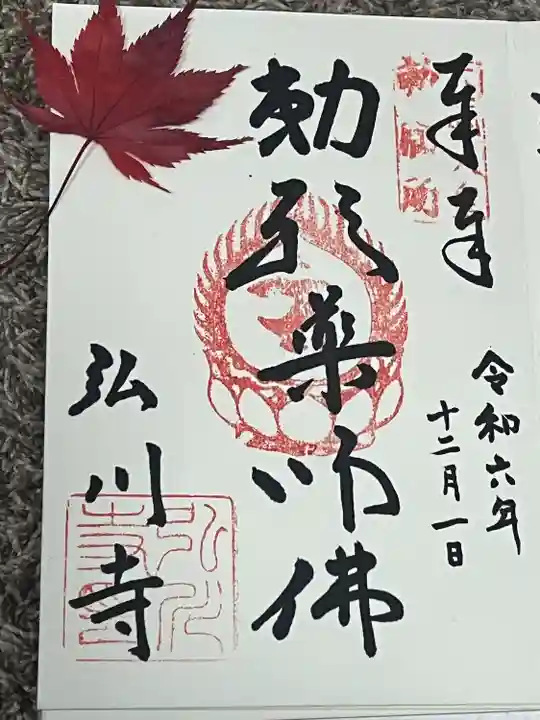 奉拝
令和六年
十二月一日
勅願所
勅願薬師佛
弘川寺